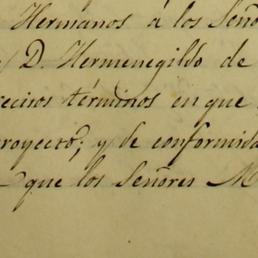 Hermanos á los Seño
D. Hermenegildo de
recisos términos en que
royecto; y de conformida
que los Señores M